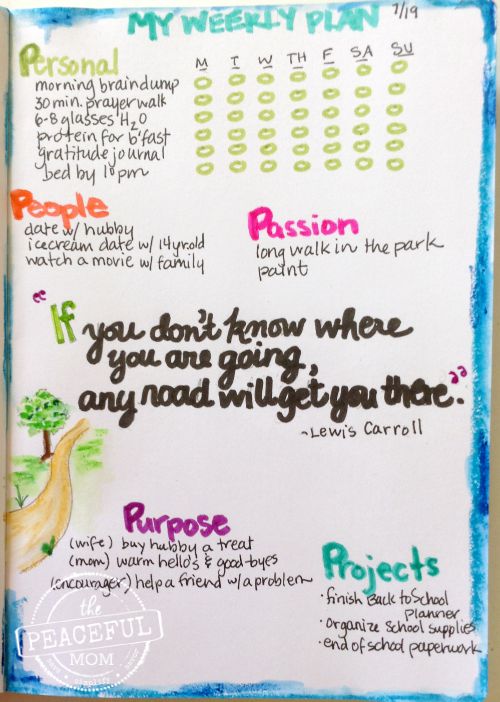 MY WEEKLY PLAN 7/19
Personal M T W TH F SA SU
morning braindump
30 min. prayer walk
6-8 glasses H2O
protein for b'fast
gratitude journal
bed by 10pm
People
date w/ hubby
icecream date w/ 14yr.old
watch a movie w/ family
Passion
long walk in the park
paint
"If you don't know where
you are going,
any road will get you there."
~Lewis Carroll
Purpose
(wife) buy hubby a treat
(mom) warm hello's & good-byes
(encourager) help a friend w/a problem
Projects
·finish Back to School
planner
·organize school supplies
·end of school paperwork
the
PEACEFUL
MOM
simplify